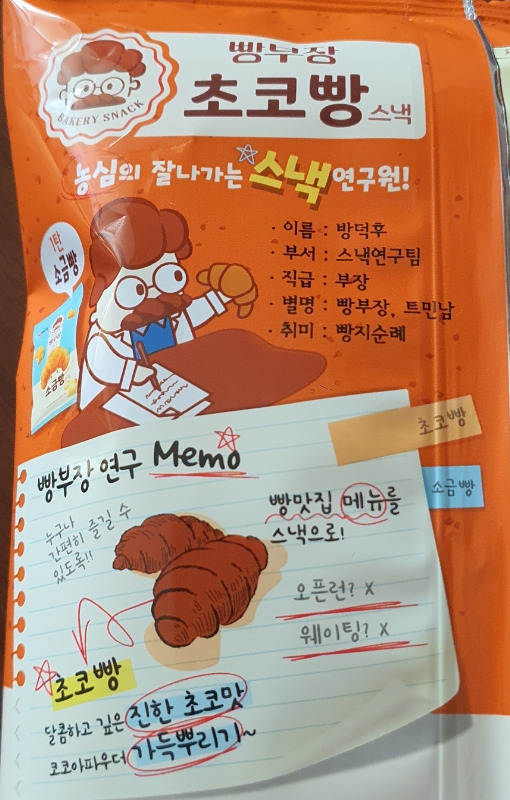 BAKERY SNACK
빵부장
초코빵 스낵
농심의 잘나가는 스낵연구원!
· 이름 : 방덕후
· 부서 : 스낵연구팀
· 직급 : 부장
· 별명 : 빵부장, 트민남
· 취미 : 빵지순례
1탄
소금빵
빵부장
소금빵
초코빵
소금빵
빵부장 연구 Memo
누구나
간편히 즐길 수
있도록!!
빵맛집 메뉴를
스낵으로!
오픈런? X
웨이팅? X
초코빵
달콤하고 깊은 진한 초코맛
코코아파우더 가득뿌리기~